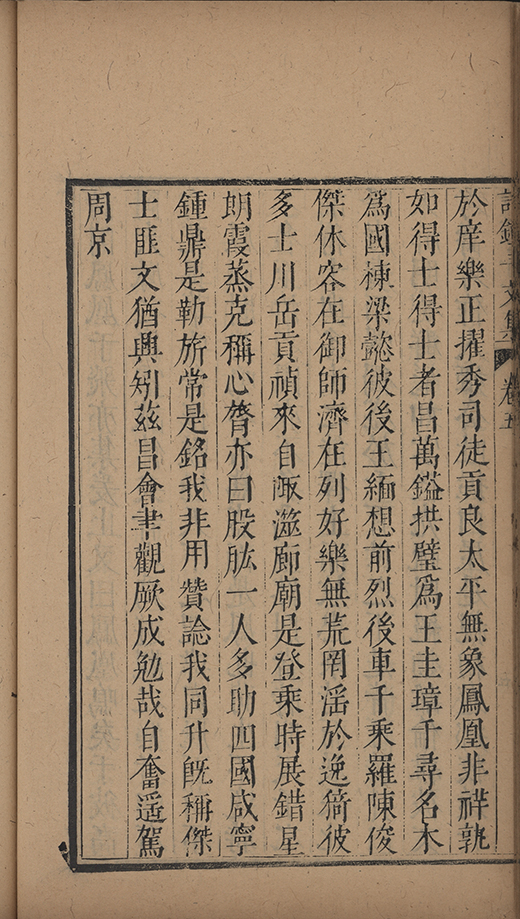 卷五
於庠樂正擢秀司徒貢良太平無象鳳凰非祥孰
如得士得士者昌萬鎰拱璧爲王圭璋千尋名木
爲國棟梁懿彼後王緬想前烈後車千乘羅陳俊
傑休容在御師濟在列好樂無荒罔滛於逸猗彼
多士川岳貢禎來自陬澨廊廟是登乘時展錯星
朗霞蒸克稱心膂亦曰股肱一人多助四國咸寧
鍾鼎是勒旂常是銘我非用贊諗我同升旣稱傑
士匪文猶興矧茲昌會聿觀厥成勉哉自奮遥駕
周京